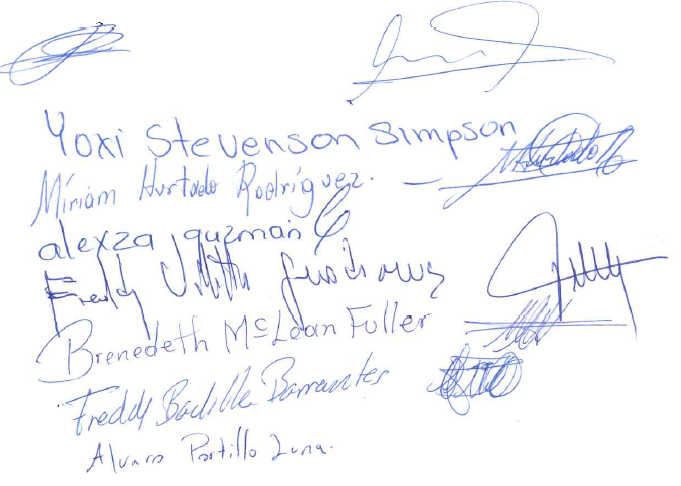 Yoxi Stevenson Simpson
Míriam Hurtado Rodríguez.
alexza guzmán
Freddy
Brenedeth McLean Fuller
Freddy Badilla Barrantes
Alvaro Portillo Luna.